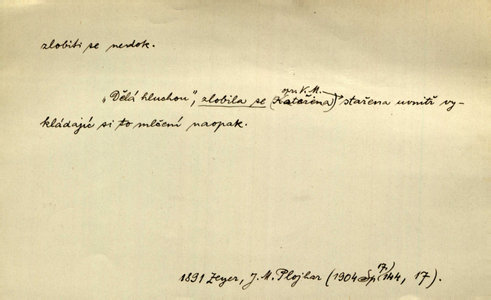 zlobiti se nedok.
„Dělá hluchou“, zlobila se (Kateřina) stařena uvnitř vy-
kládajíc si to mlčení naopak.
1891 Zeyer, J. M. Plojhar (1904 Sp 17) 144, 17).